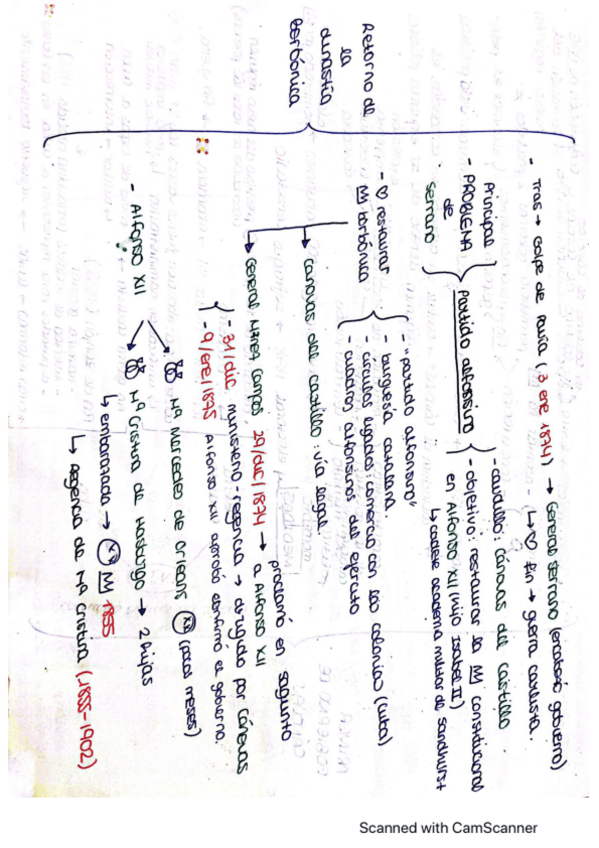 Retorno de
la
dinastía
borbónica
- Tras → Golpe de Pavía (3 ene 1874) → General Serrano (encabezó gobierno)
↳ ♡ fin → guerra carlista.
- Principal
PROBLEMA
de
Serrano
Partido alfonsino
- caudillo: Cánovas del Castillo
- objetivo: restaurar la M constitucional
en Alfonso XII (hijo Isabel II)
↳ academia militar de Sandhurst
- ♡ restaurar
M borbónica
- "partido alfonsino"
- burguesía catalana
- círculos ligados: comercio con las colonias (Cuba)
- cuadros alfonsinos del ejército
→ Canovas del Castillo: vía legal
→ General Mtnez Campos, 29/dic/1874 → proclamó en Sagunto
a Alfonso XII
- 31/dic ministerio: regencia → dirigido por Cánovas
- 9/ene/1875 Alfonso XII confirmó el gobierno
- Alfonso XII
→ Mª Mercedes de Orleans (pocos meses)
→ Mª Cristina de Habsburgo → 2 hijas
↳ embarazada → M 1885
↳ Regencia de Mª Cristina (1885-1902)
Scanned with CamScanner